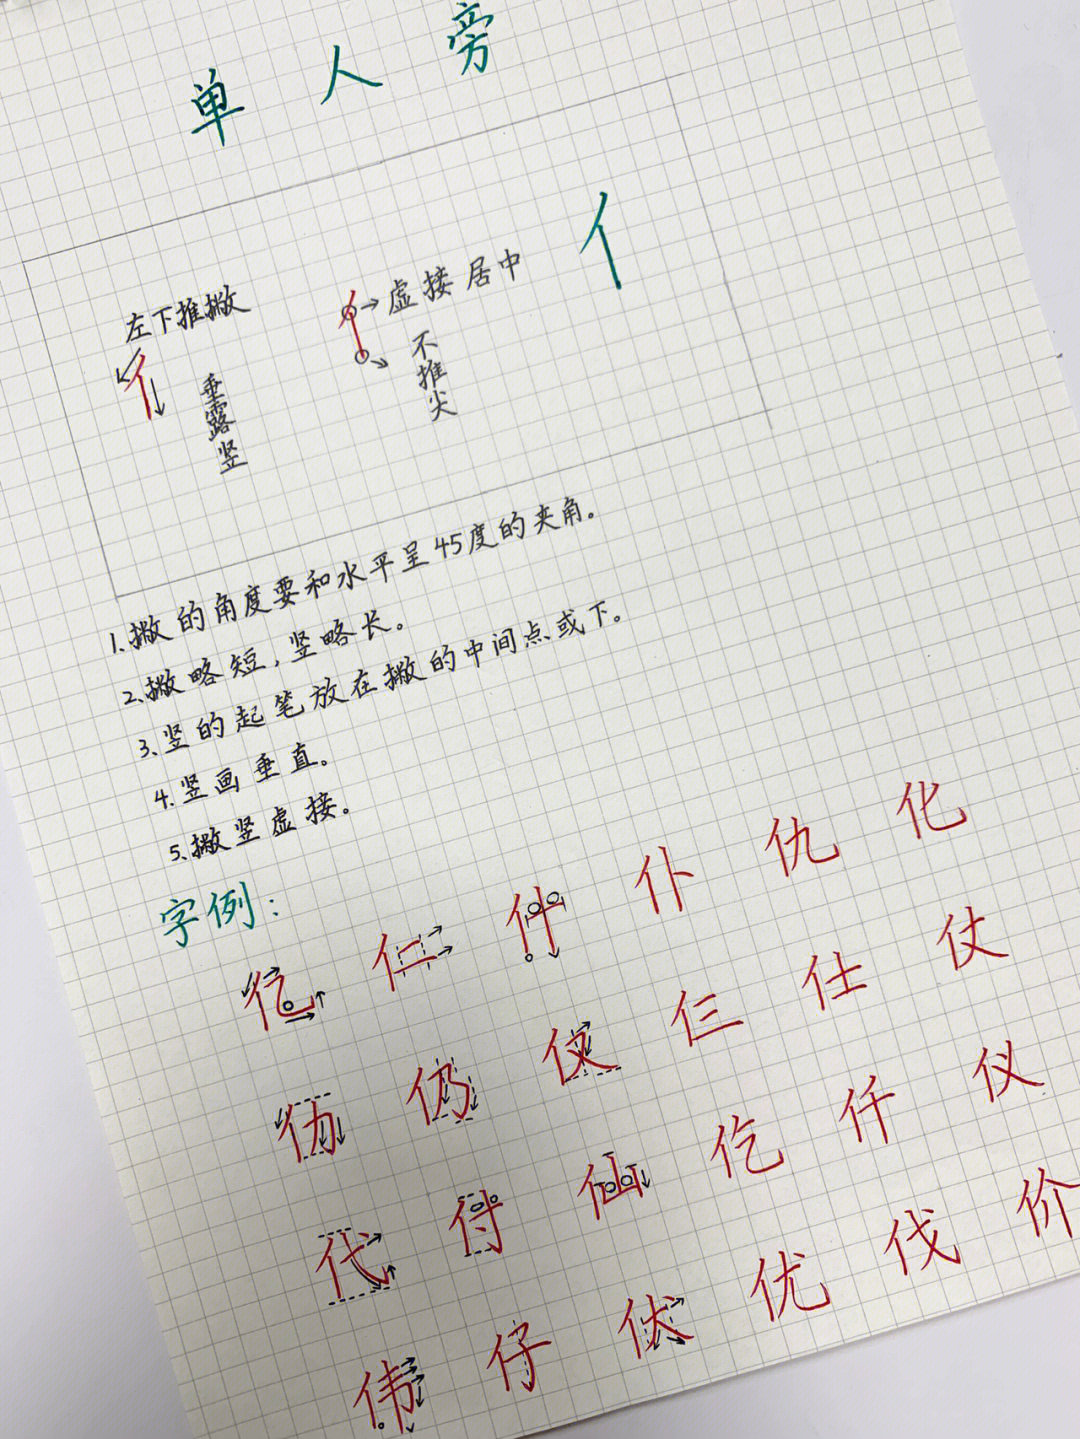 单人旁
左下推撇
垂露竖
虚接居中
不推尖
亻
1.撇的角度要和水平呈45度的夹角。
2.撇略短,竖略长。
3.竖的起笔放在撇的中间点或下。
4.竖画垂直。
5.撇竖虚接。
字例:
亿 仁 什 仆 仇 化
仂 仍 仅 仨 仕 仗
代 付 仙 仡 仟 仪
伟 仔 伏 优 伐 价